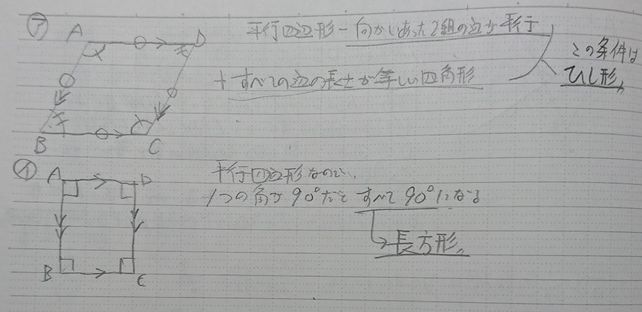 ㋐
A D
平行四辺形－向かいあった2組の辺が平行
この条件は
ひし形〃
+すべての辺の長さが等しい四角形
B C
㋑
A D
平行四辺形なので、
1つの角が90°だと すべて90°になる
長方形〃
B C